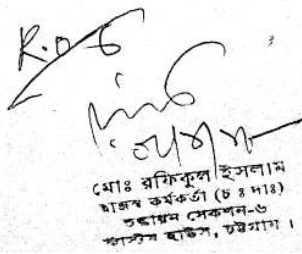 R.O 6
মোঃ রফিকুল ইসলাম
রাজস্ব কর্মকর্তা (চঃ দাঃ)
শুল্কায়ন সেকশন-৬
কাস্টম হাউস, চট্টগ্রাম।